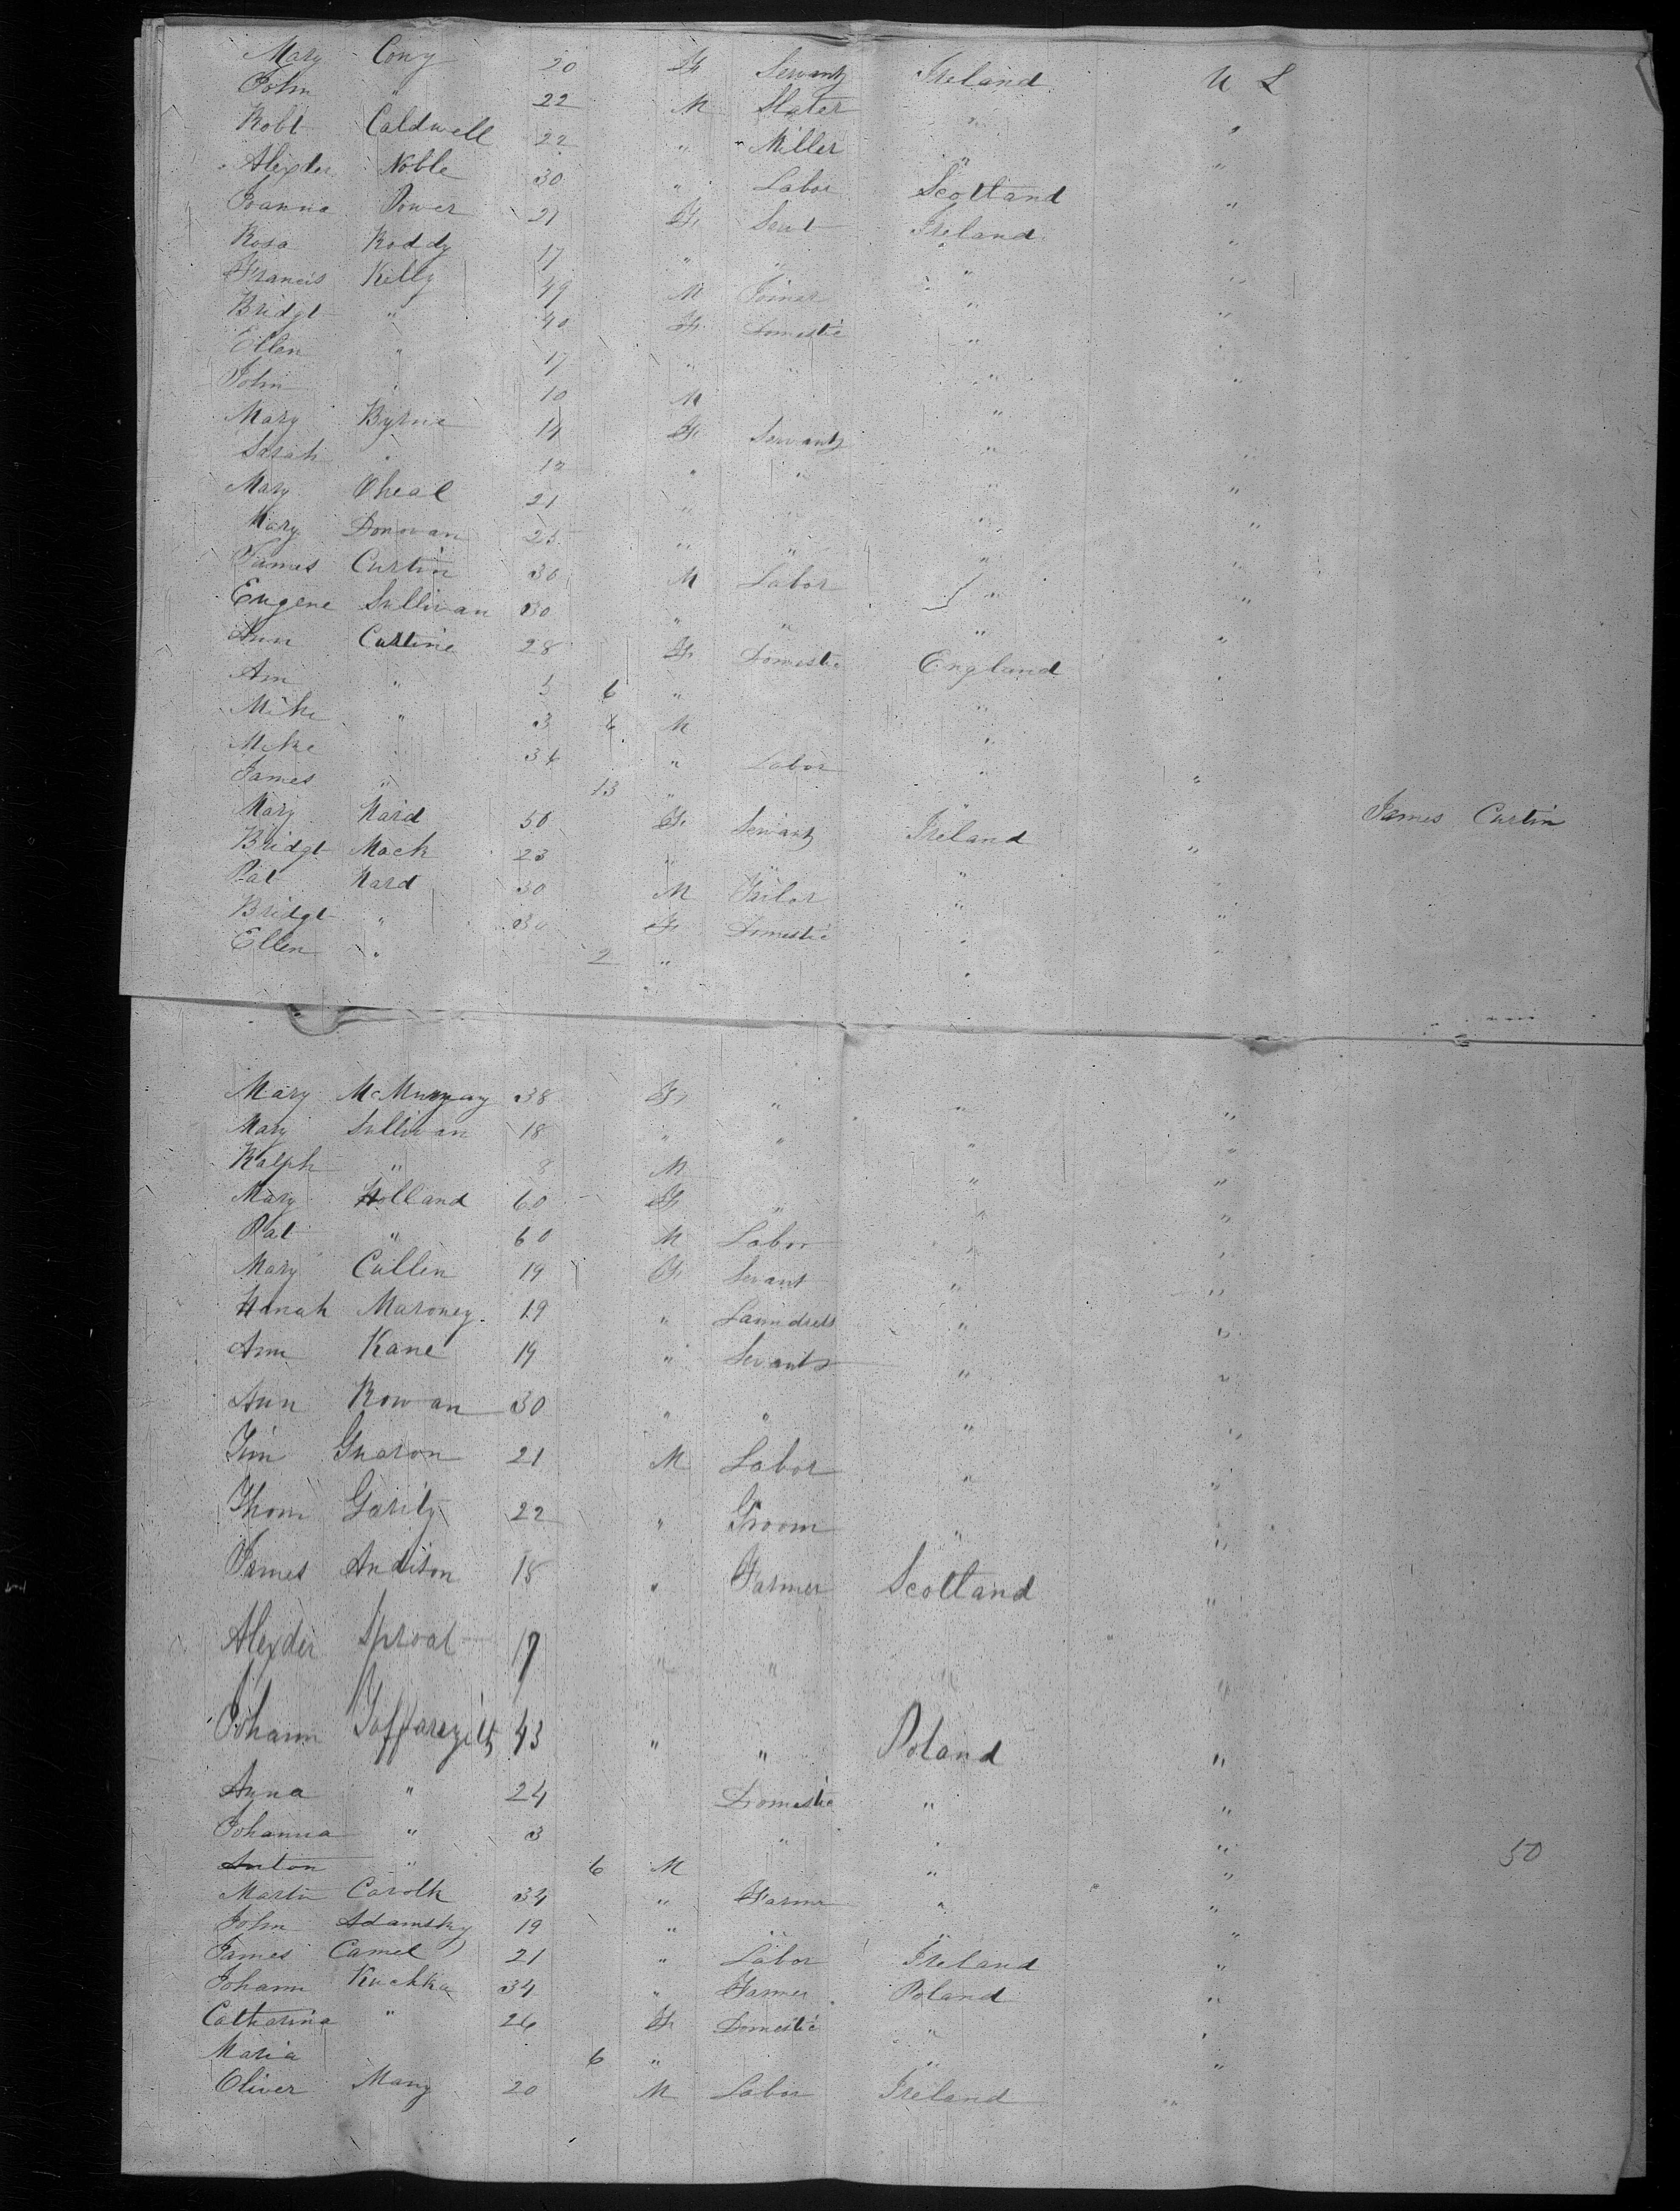 Mary Cony 20 F Servant Ireland U S
John " 22 M Slater " "
Robt Caldwell 22 " Miller " "
Alexder Noble 30 " Labor Scotland "
Joanna Power 21 F Servt Ireland "
Rosa Roddy 17 " " " "
Francis Kelly 49 M Joiner " "
Bridgt " 40 F Domestic " "
Ellen " 17 " " " "
John " 10 M "
Mary Byrne 14 F Servant " "
Sarah " 12 " " " "
Mary Oheal 21 " " " "
Mary Donovan 25 " " " "
James Curtin 30 M Labor " "
Eugene Sullivan 30 " " " "
Ann Curtine 28 F Domestic England "
Ann " 6 " "
Mike " 3 M "
Mike " 36 " Labor " "
James " 13 " " James Curtin
Mary Ward 50 F Servant Ireland "
Bridgt Mack 23 " " " "
Pat Ward 30 M Tailor " "
Bridgt " 30 F Domestic " "
Ellen " 2 " "
Mary McMurray 38 F " " "
Mary Sullivan 18 " " " "
Ralph " 8 M " "
Mary Holland 60 F " " "
Pat " 60 M Labor " "
Mary Cullen 19 F Servant " "
Hanah Maroney 19 " Laundress " "
Ann Kane 19 " Servant " "
Ann Rowan 30 " " " "
Jim Gnaron 21 M Labor " "
Thom Garity 22 " Groom " "
James Andison 18 " Farmer Scotland "
Alexder Sproat 17 " " " "
Johann 43 " " Poland "
Anna " 24 Domestic " "
Johanna " 3 " " " 50
Anton " 6 M " "
Martin Carolk 34 " Farmer " "
John Adamsky 19 " " " "
James Camel 21 " Labor Ireland "
Johann Kuchka 34 " Farmer Poland "
Catharina " 26 F Domestic " "
Maria 6 " " "
Oliver Many 20 M Labor Ireland "